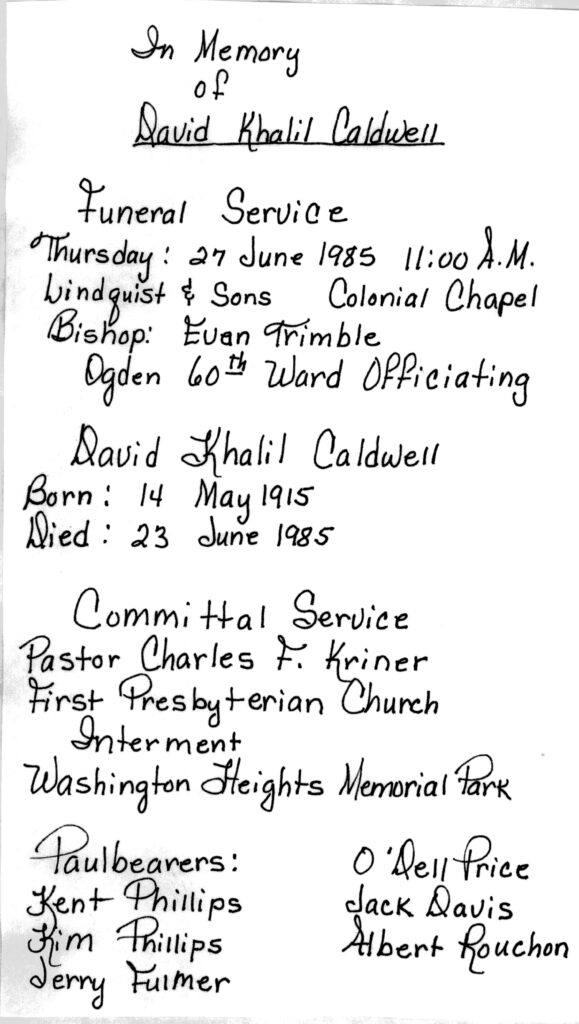 In Memory
of
David Khalil Caldwell
Funeral Service
Thursday: 27 June 1985 11:00 A.M.
Lindquist & Sons Colonial Chapel
Bishop: Evan Trimble
Ogden 60th Ward Officiating
David Khalil Caldwell
Born: 14 May 1915
Died: 23 June 1985
Committal Service
Pastor Charles F. Kriner
First Presbyterian Church
Interment
Washington Heights Memorial Park
Paulbearers:
Kent Phillips
Kim Phillips
Jerry Fulmer
O'Dell Price
Jack Davis
Albert Rouchon